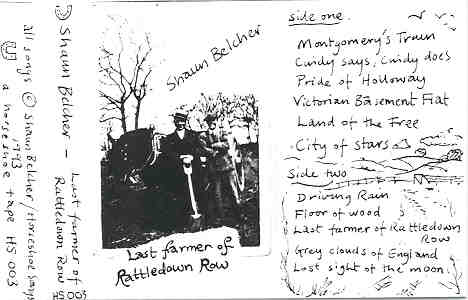 all songs © Shaun Belcher / Horseshoe songs
1993
a horseshoe tape HS 003
Shaun Belcher -
Last farmer of
Rattledown Row
HS 003
Shaun Belcher
Last farmer of
Rattledown Row
side one.
Montgomery's Train
Cindy says, Cindy does
Pride of Holloway
Victorian Basement Flat
Land of the Free
City of Stars
Side two
Driving Rain
Floor of wood
Last farmer of Rattledown
Row
Grey clouds of England
Lost sight of the moon.